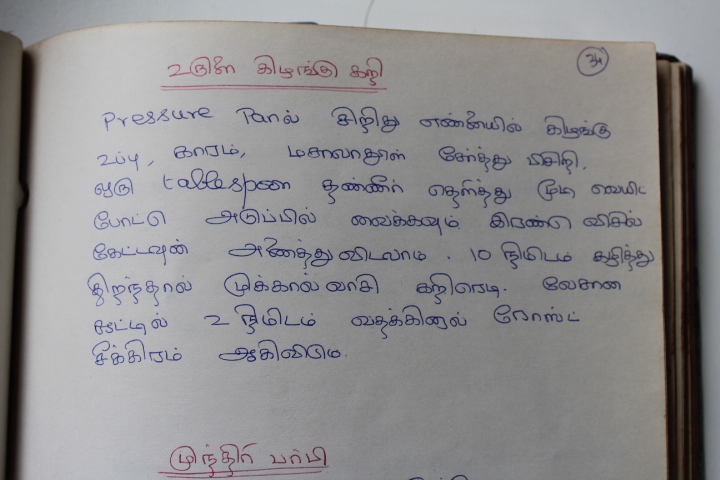 உருளை கிழங்கு கறி
Pressure Panல் சிறிது எண்ணெயில் கிழங்கு
உப்பு, காரம், மசாலாதூள் சேர்த்து பிசிறி.
ஒரு tablespon தண்ணீர் தெளித்து மூடி வெயிட்
போட்டு அடுப்பில் வைக்கவும் இரண்டு விசில்
கேட்டவுன் அணைத்து விடலாம். 10 நிமிடம் கழித்து
திறந்தால் முக்கால் வாசி கறிரெடி. லேசான
சூட்டில் 2 நிமிடம் வதக்கினால் ரோஸ்ட்
சீக்கிரம் ஆகிவிடும்.
முந்திரி பர்பி